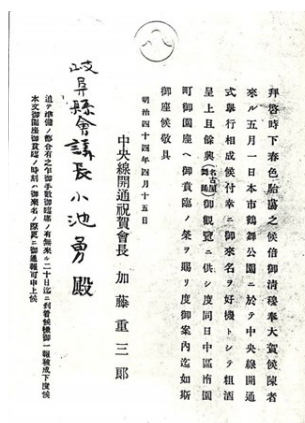 八
拝啓時下春色胎蕩之候倍御清穆奉大賀候陳者
來ル五月一日本市鶴舞公園ニ於テ中央線開通
式擧行相成候付幸ニ御來名ヲ好機トシテ粗酒
呈上且餘興(名古屋舞踊)御觀覽ニ供シ度同日中區南園
町御園座ヘ御賁臨ノ榮ヲ賜リ度御案内迄如斯
御座候敬具
明治四十四年四月十五日
中央線開通祝賀會長 加藤重三郎
岐阜縣會議長小池勇殿
追テ準備ノ都合有之乍御手數御臨席ノ有無來ル二十日迄ニ到着候樣御一報被成下度候
本文御園座御賁臨ノ時刻ハ御來名ノ際更ニ御通報可申上候